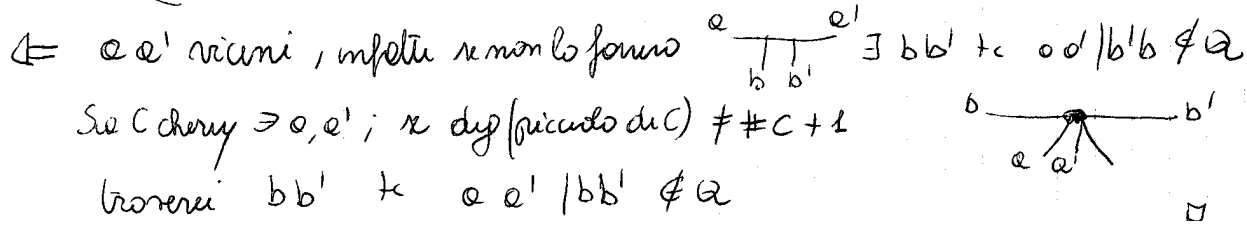 ⇐ a a' vicini, infatti se non lo fanno a a' b b' ∃ bb' tc aa'|b'b ∉ Q
Sia C cherry ∋ a,a'; se deg(picciolo di C) ≠ #C + 1 b b' a a'
troverei bb' tc a a' |bb' ∉ Q
□